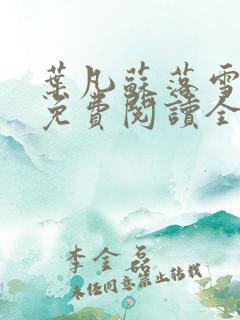 葉凡蘇落雪
免費閱讀全
李金磊
未经同意禁止转载